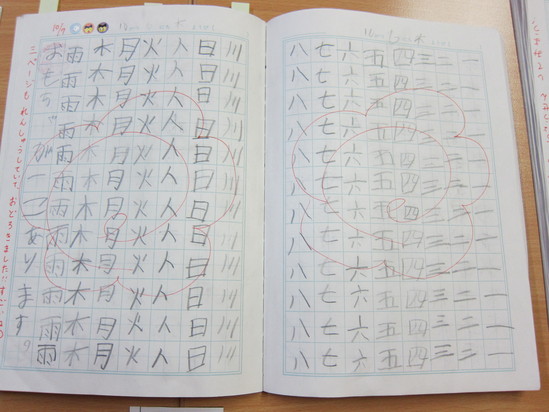 一一一一一一一一一一一一
二二二二二二二二二二二二
三三三三三三三三三三三三
四四四四四四四四四四四四
五五五五五五五五五五五五
六六六六六六六六六六六六
七七七七七七七七七七七七
八八八八八八八八八八八八
川川川川川川川川川川川川
日日日日日日日日日日日日
人人人人人人人人人人人人
火火火火火火火火火火火火
月月月月月月月月月月月月
木木木木木木木木木木木木
雨雨雨雨雨雨雨雨雨雨雨雨
10/9
おもちゃが一こあります。
三ページも れんしゅうしていて、おどろきました。すごいね